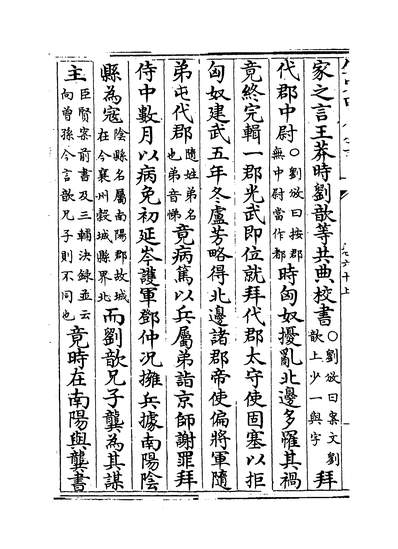 家之言王莽時劉歆等共典校書○劉攽曰案文劉歆上少一與字拜
代郡中尉○劉攽曰按郡無中尉當作都時匈奴擾亂北邊多罹其禍
竟終完輯一郡光武即位就拜代郡太守使固塞以拒
匈奴建武五年冬盧芳略得北邊諸郡帝使偏將軍隨
弟屯代郡隨姓弟名也弟音悌竟病篤以兵屬弟詣京師謝罪拜
侍中數月以病免初延岑護軍鄧仲况擁兵據南陽陰
縣為寇陰縣名屬南陽郡故城在今襄州穀城縣界北而劉歆兄子龔為其謀
主臣賢案前書及三輔決録並云向曾孫今言歆兄子則不同也竟時在南陽與龔書